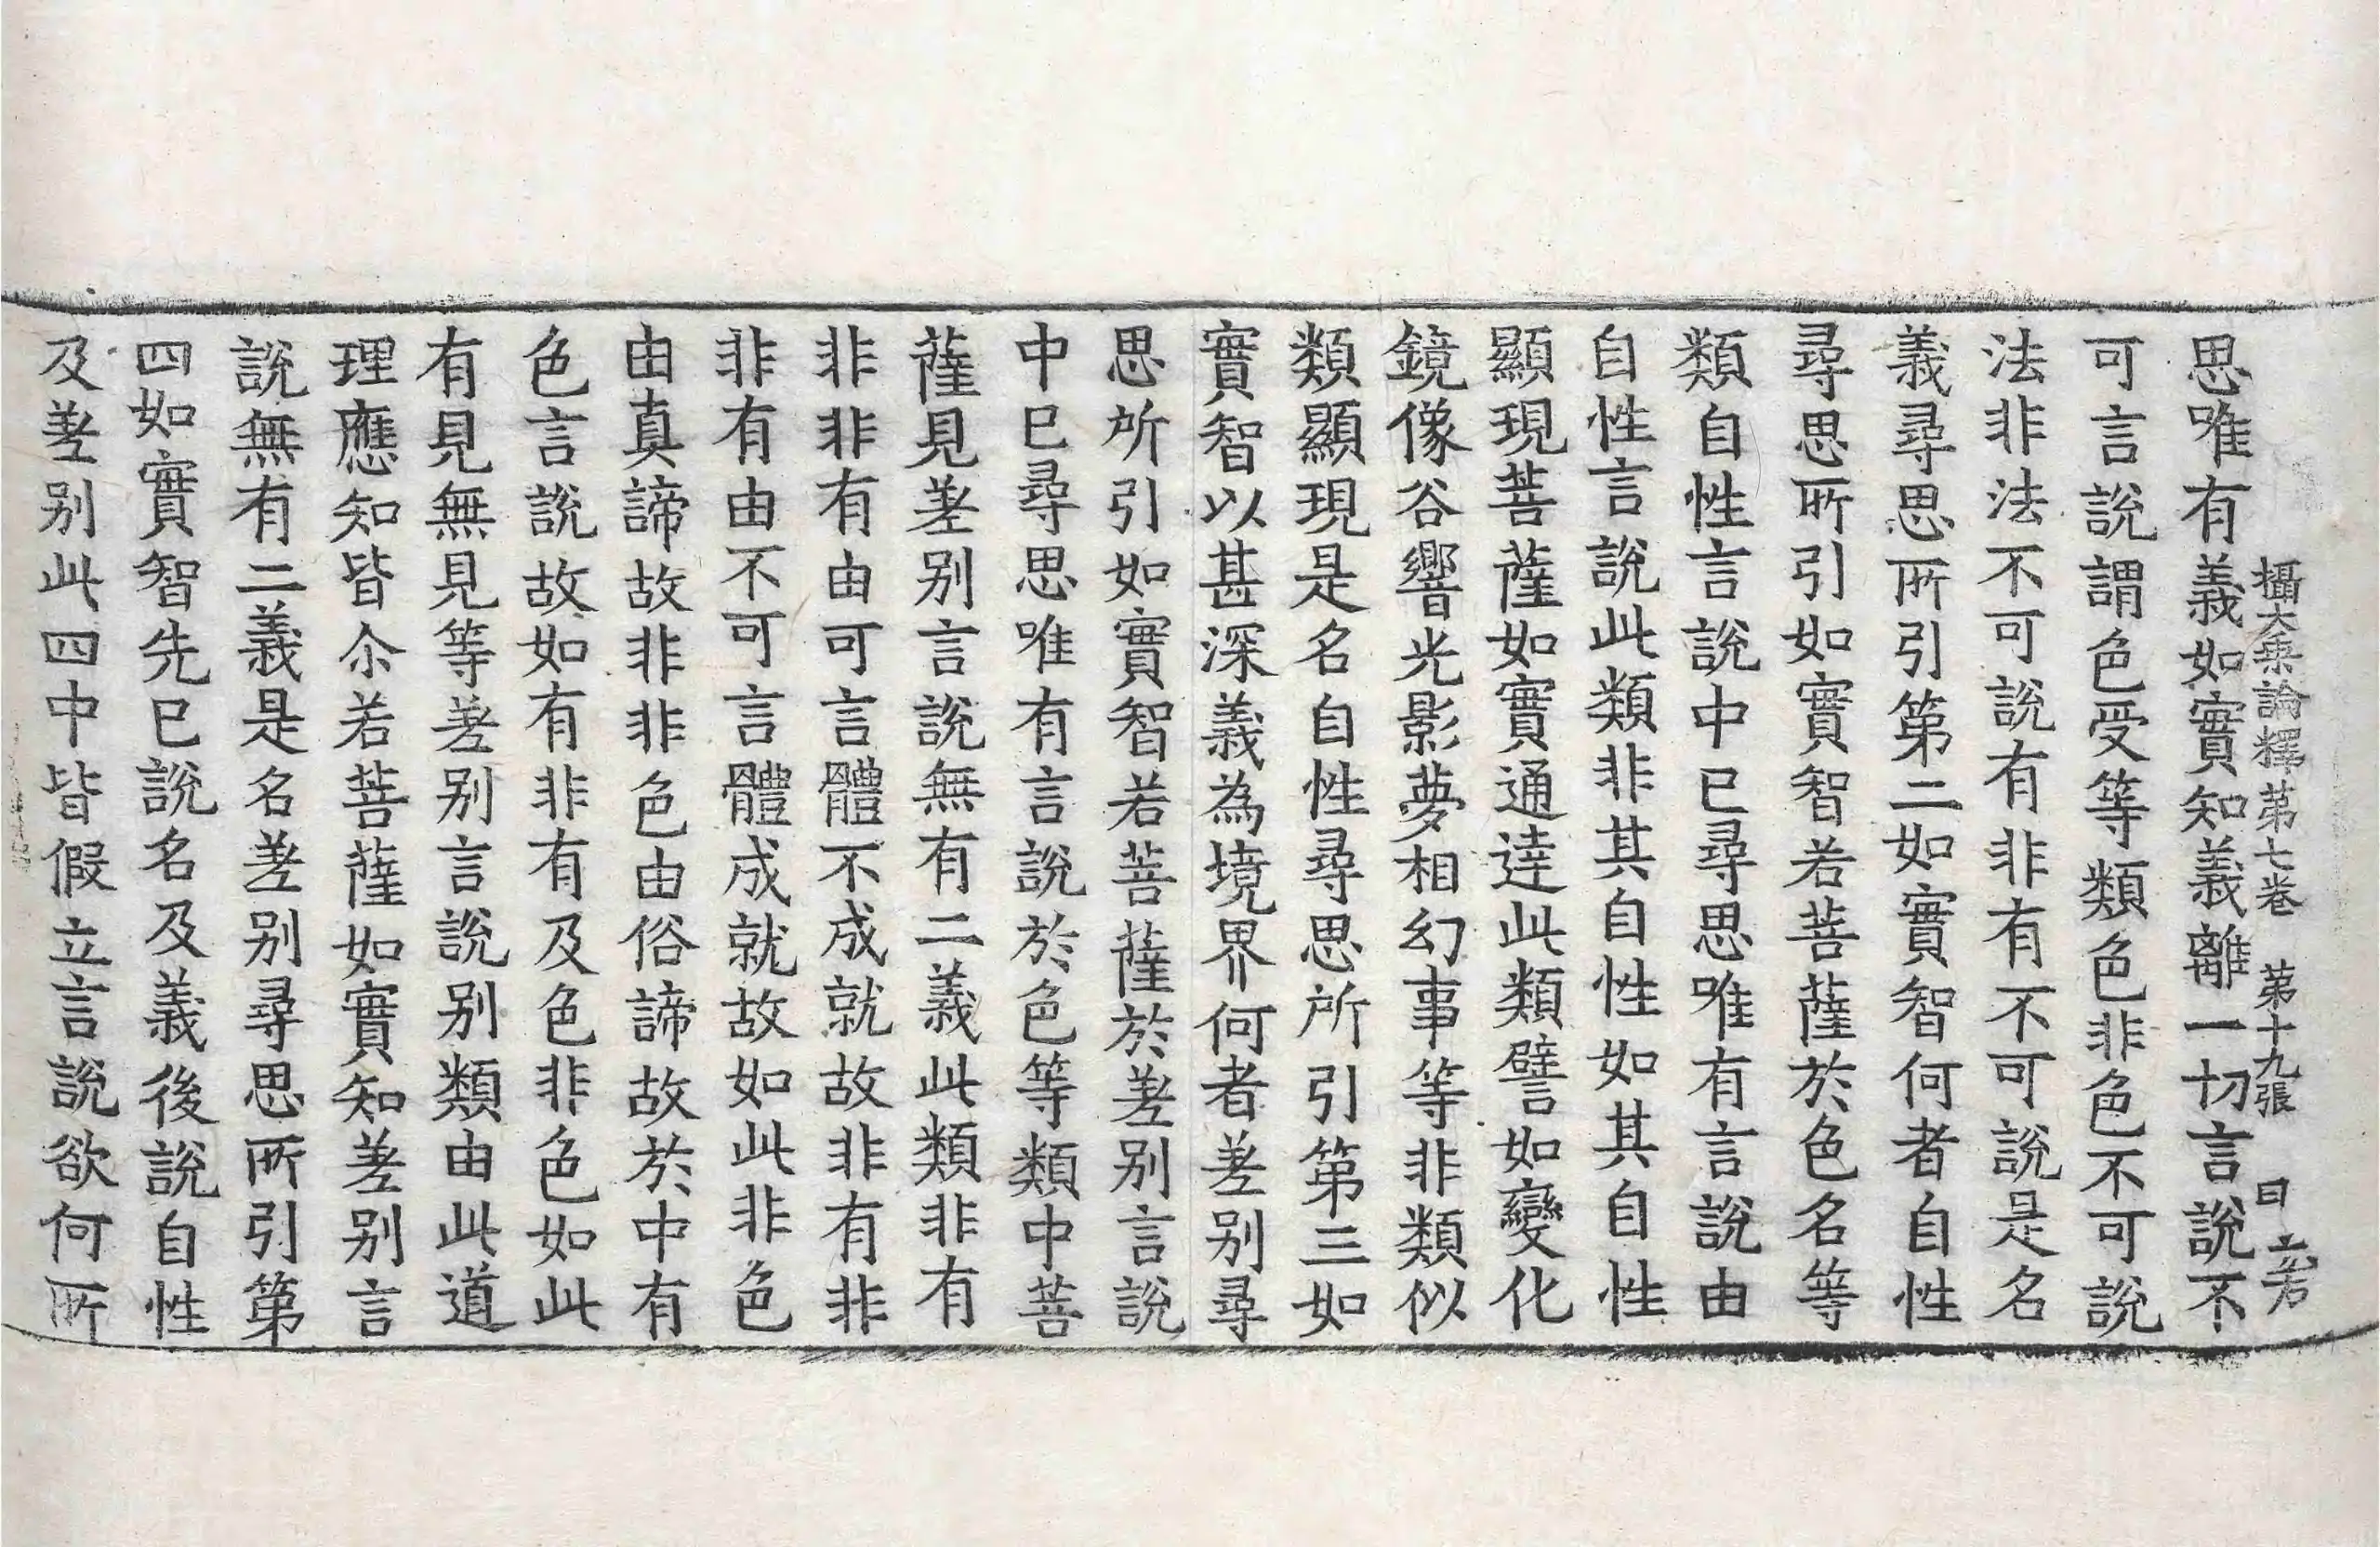 攝大乗論釋第七卷　第十九張　曰
思唯有義如實知義離一切言說不
可言說謂色受等類色非色不可說
法非法不可說有非有不可說是名
義尋思所引第二如實智何者自性
尋思所引如實智若菩薩於色名等
類自性言說中已尋思唯有言說由
自性言說此類非其自性如其自性
顯現菩薩如實通達此類譬如變化
鏡像谷響光影夢相幻事等非類似
類顯現是名自性尋思所引第三如
實智以甚深義為境界何者差別尋
思所引如實智若菩薩於差別言說
中已尋思唯有言說於色等類中菩
薩見差別言說無有二義此類非有
非非有由可言體不成就故非有非
非有由不可言體成就故如此非色
由真諦故非非色由俗諦故於中有
色言說故如有非有及色非色如此
有見無見等差別言說別類由此道
理應知皆尒若菩薩如實知差別言
說無有二義是名差別尋思所引第
四如實智先已說名及義後說自性
及差別此四中皆假立言說欲何所